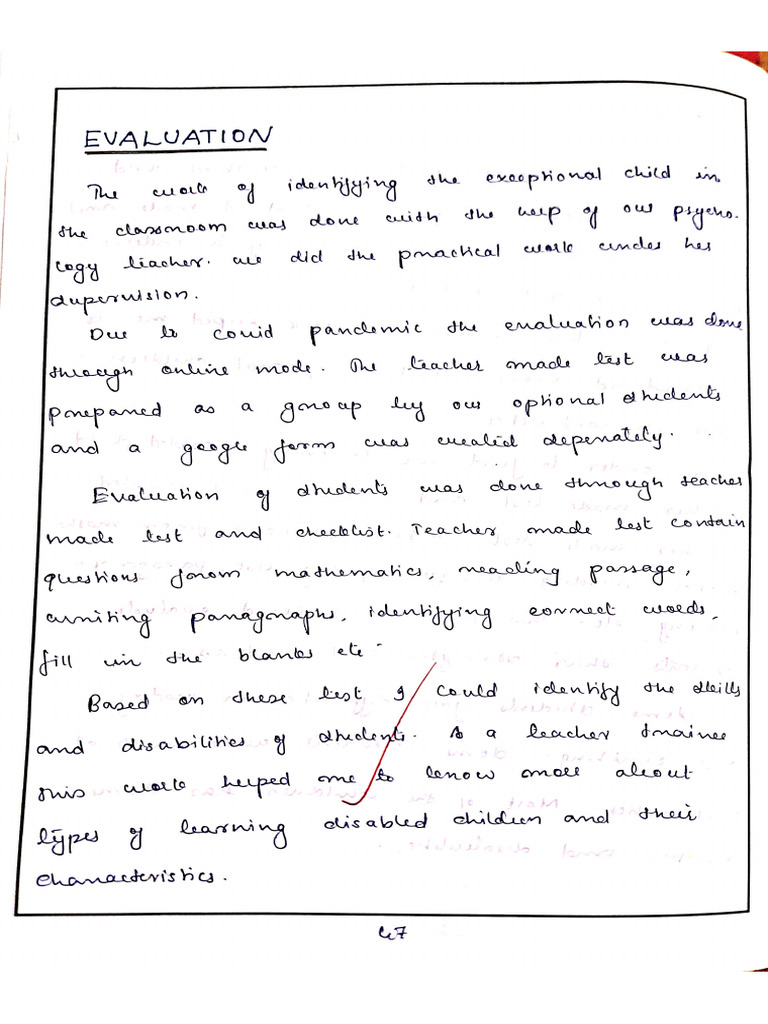 EVALUATION
The work of identifying the exceptional child in
the classroom was done with the help of our psycho.
logy teacher. we did the practical work under her
supervision.
Due to covid pandemic the evaluation was done
through online mode. The teacher made test was
prepared as a group by our optional students
and a google form was created seperately.
Evaluation of students was done through teacher
made test and checklist. Teacher made test contain
questions from mathematics, reading passage,
writing paragraphs, identifying correct words,
fill in the blanks etc.
Based on these test I could identify the skills
and disabilities of students. As a teacher trainee
this work helped me to know more about
types of learning disabled children and their
characteristics.
47